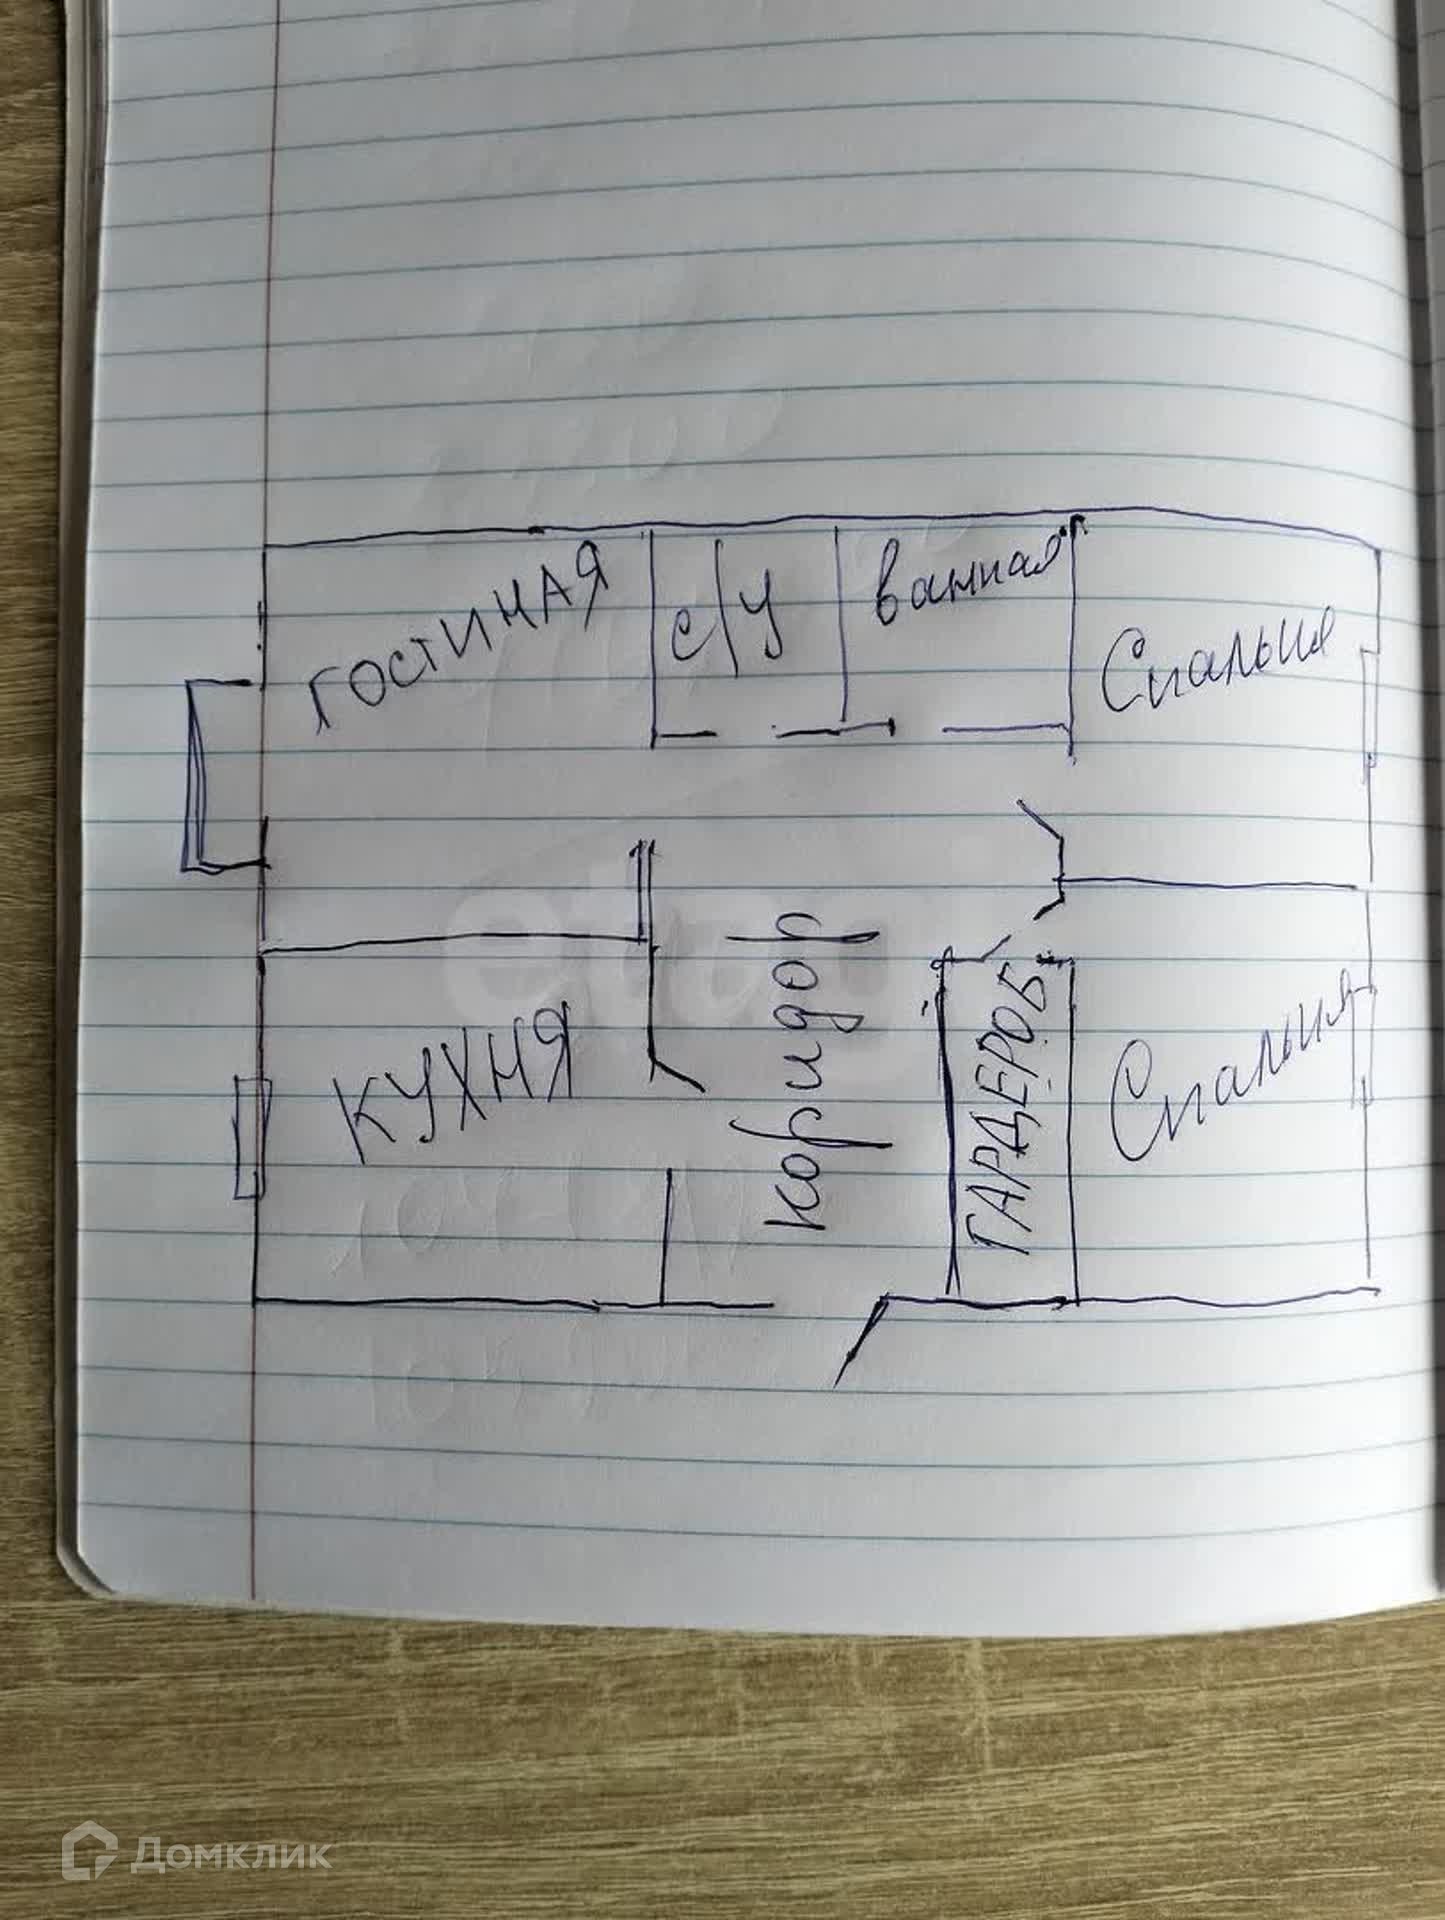 гостиная
с/у
ванная
Спальня
кухня
коридор
ГАРДЕРОБ
Спальня
etagi
Домклик